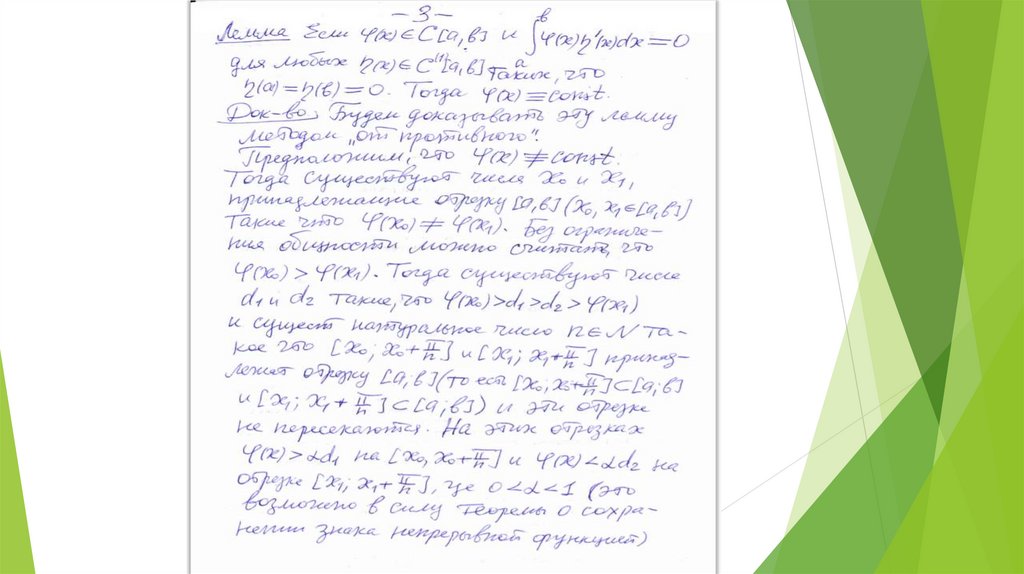 — 3 —
Лемма Если φ(x) ∈ C[a,в] и ∫ₐᵇ φ(x)η'(x)dx = 0
для любых η(x) ∈ C⁽¹⁾[a,в] таких, что
η(a) = η(в) = 0. Тогда φ(x) ≡ const.
Док-во, Будем доказывать эту лемму
методом „от противного".
Предположим, что φ(x) ≢ const.
Тогда существуют числа x0 и x1,
принадлежащие отрезку [a,в] (x0, x1 ∈ [a,в])
такие что φ(x0) ≠ φ(x1). Без ограниче-
ния общности можно считать, что
φ(x0) > φ(x1). Тогда существуют числа
d1 и d2 такие, что φ(x0) > d1 > d2 > φ(x1)
и сущест натуральное число n ∈ N та-
кое что [x0; x0 + π/n] и [x1; x1 + π/n] принад-
лежат отрезку [a,в] (то есть [x0; x0 + π/n] ⊂ [a;в]
и [x1; x1 + π/n] ⊂ [a;в]) и эти отрезки
не пересекаются. На этих отрезках
φ(x) > αd1 на [x0, x0 + π/n] и φ(x) < αd2 на
отрезке [x1; x1 + π/n], где 0 < α < 1 (это
возможно в силу теоремы о сохра-
нении знака непрерывной функцией)